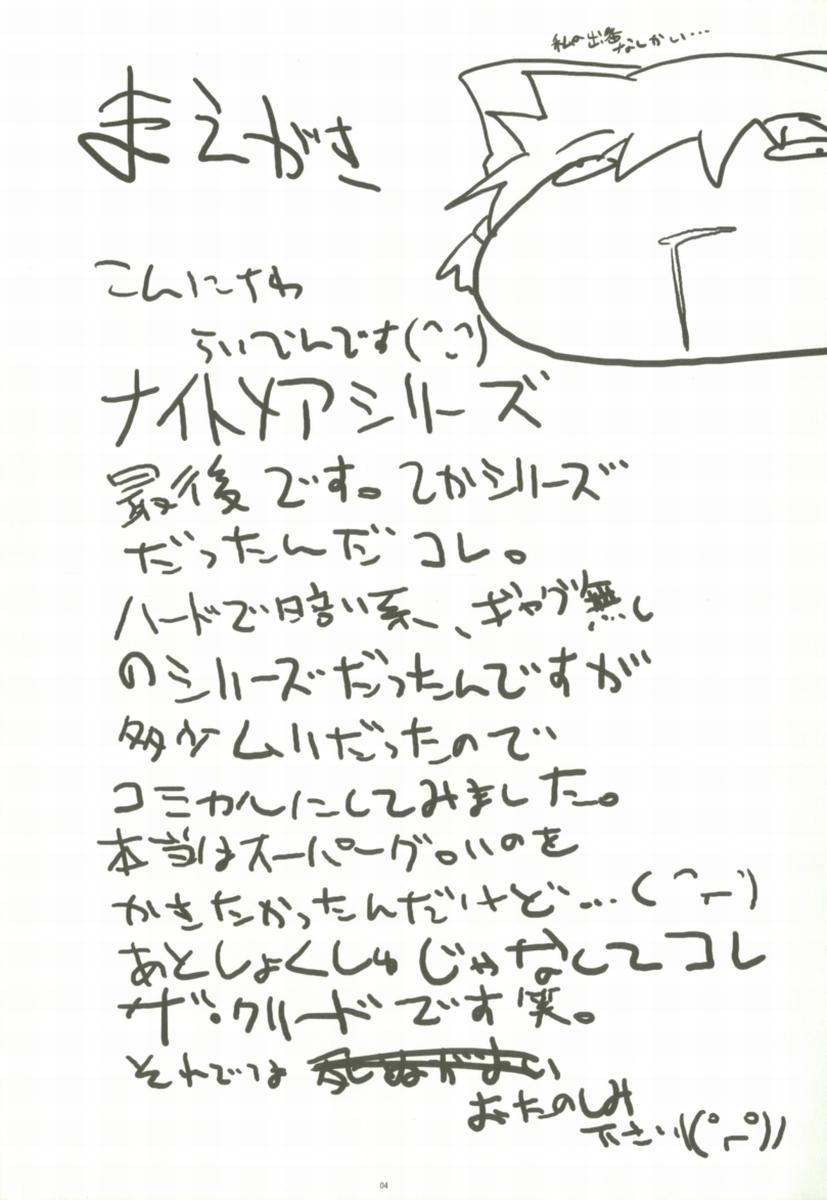 私の出番
なしかい…
まえがき
こんにちわ
らいでんです(^-^)
ナイトメアシリーズ
最後です。てかシリーズ
だったんだコレ。
ハードで暗い系、ギャグ無し
のシリーズだったんですが
多少ムリだったので
コミカルにしてみました。
本当はスーパーグロいのを
かきたかったんだけど…(^ー^)
あとしょくしゅじゃなくてコレ
ザ・クリードです笑。
それでは 死ぬがよい
おたのしみ
下さい\\(°ー°)//
04